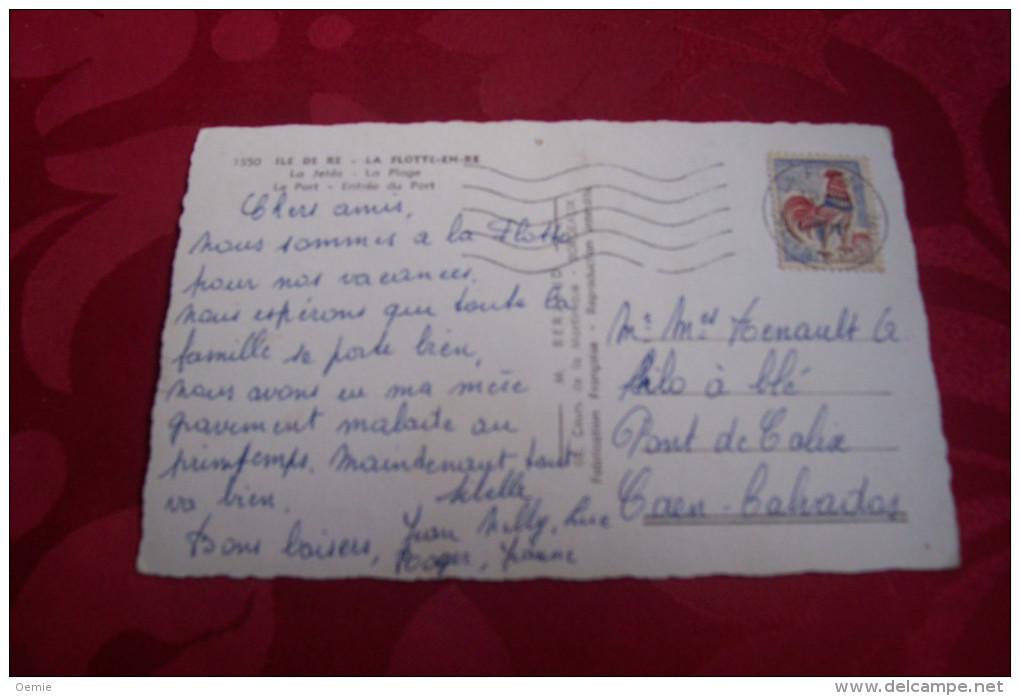 1550 ILE DE RE - LA FLOTTE-EN-RE
La Jetée - La Plage
Le Port - Entrée du Port
Chers amis,
nous sommes a la Flotte
pour nos vacances.
nous espérons que toute la
famille se porte bien,
nous avons eu ma mère
gravement malade au
printemps. Maintenant tout
va bien.
Bons baisers,
Jean Milly, Luc
Roger,
M. BERJAUD
Cours de la Martinique - BORDEAUX
Fabrication Française - Reproduction Interdite
Mr Mes Henault G
Silo à blé
Pont de Calix
Caen - Calvados
Oemie
delcampe.net